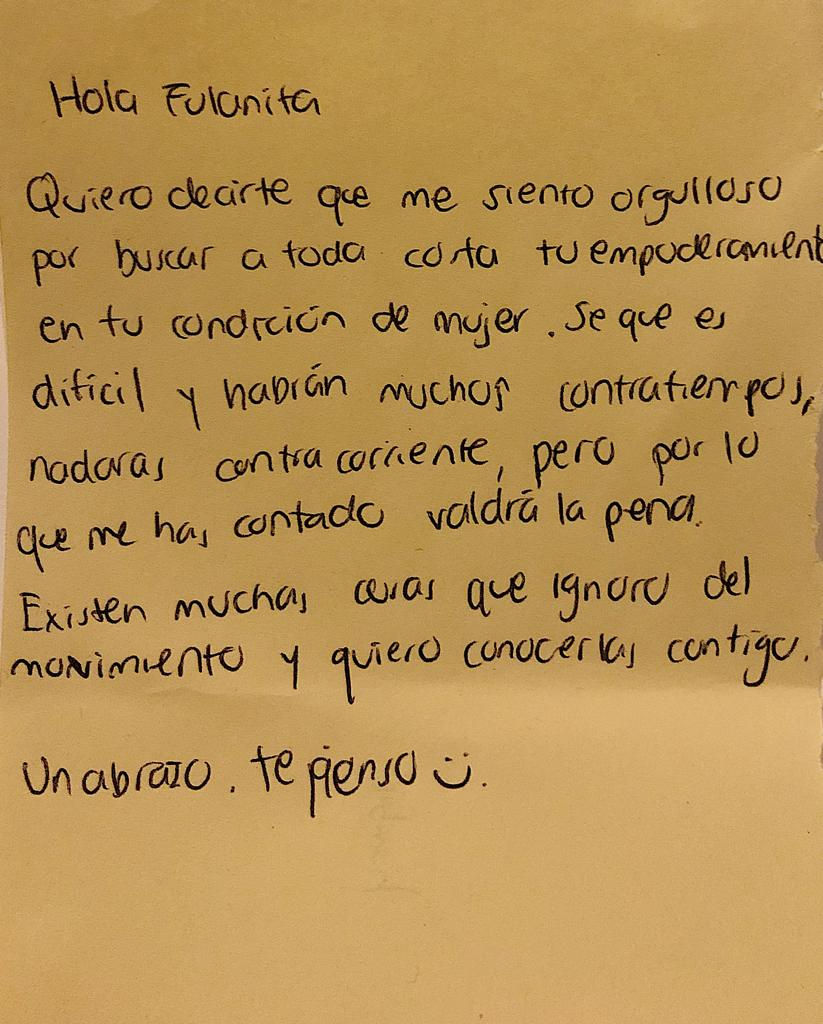 Hola Fulanita
Quiero decirte que me siento orgulloso
por buscar a toda costa tu empoderamient
en tu condición de mujer. Se que es
difícil y habrán muchos contratiempos,
nadaras contra corriente, pero por lo
que me has contado valdrá la pena.
Existen muchas cosas que ignoro del
movimiento y quiero conocerlas contigo.
Un abrazo. te pienso ü.